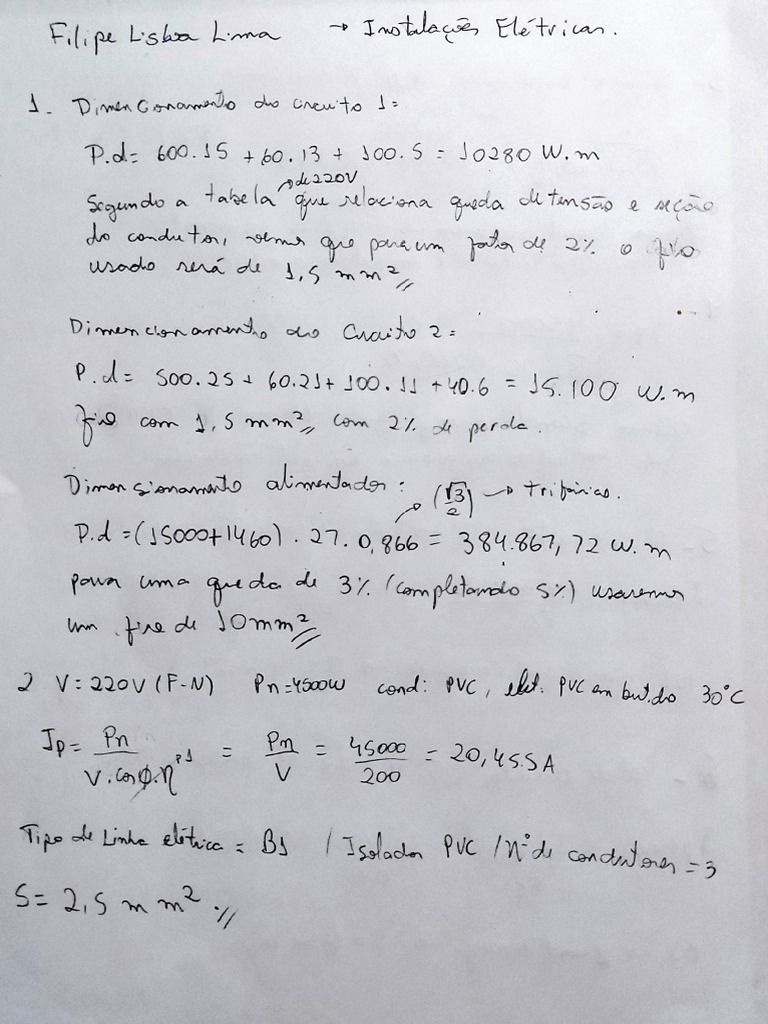 Filipe Lisboa Lima → Instalações Elétricas.
1. Dimencionamento do circuito 1:
P.d = 600.15 + 60.13 + 100.5 = 10280 W.m
→ de 220V
Segundo a tabela que relaciona queda de tensão e seção
do condutor, vemos que para um fator de 2% o fio
usado será de 1,5 mm²
Dimencionamento do Circuito 2:
P.d = 500.25 + 60.21 + 100.11 + 40.6 = 15.100 W.m
fio com 1,5 mm², com 2% de perda.
Dimensionamento alimentador: (√3/2) → trifásico.
P.d = (15000+1460) . 27 . 0,866 = 384.867,72 W.m
para uma queda de 3% (completando 5%) usaremos
um fio de 10mm²
2 V = 220V (F-N) Pn = 4500W cond: PVC, elet. PVC embutido 30°C
Ip = Pn / V.cosφ.η = Pn / V = 45000 / 200 = 20,455A
Tipo de Linha elétrica = B1 / Isolador PVC / Nº de condutores = 3
S = 2,5 mm²